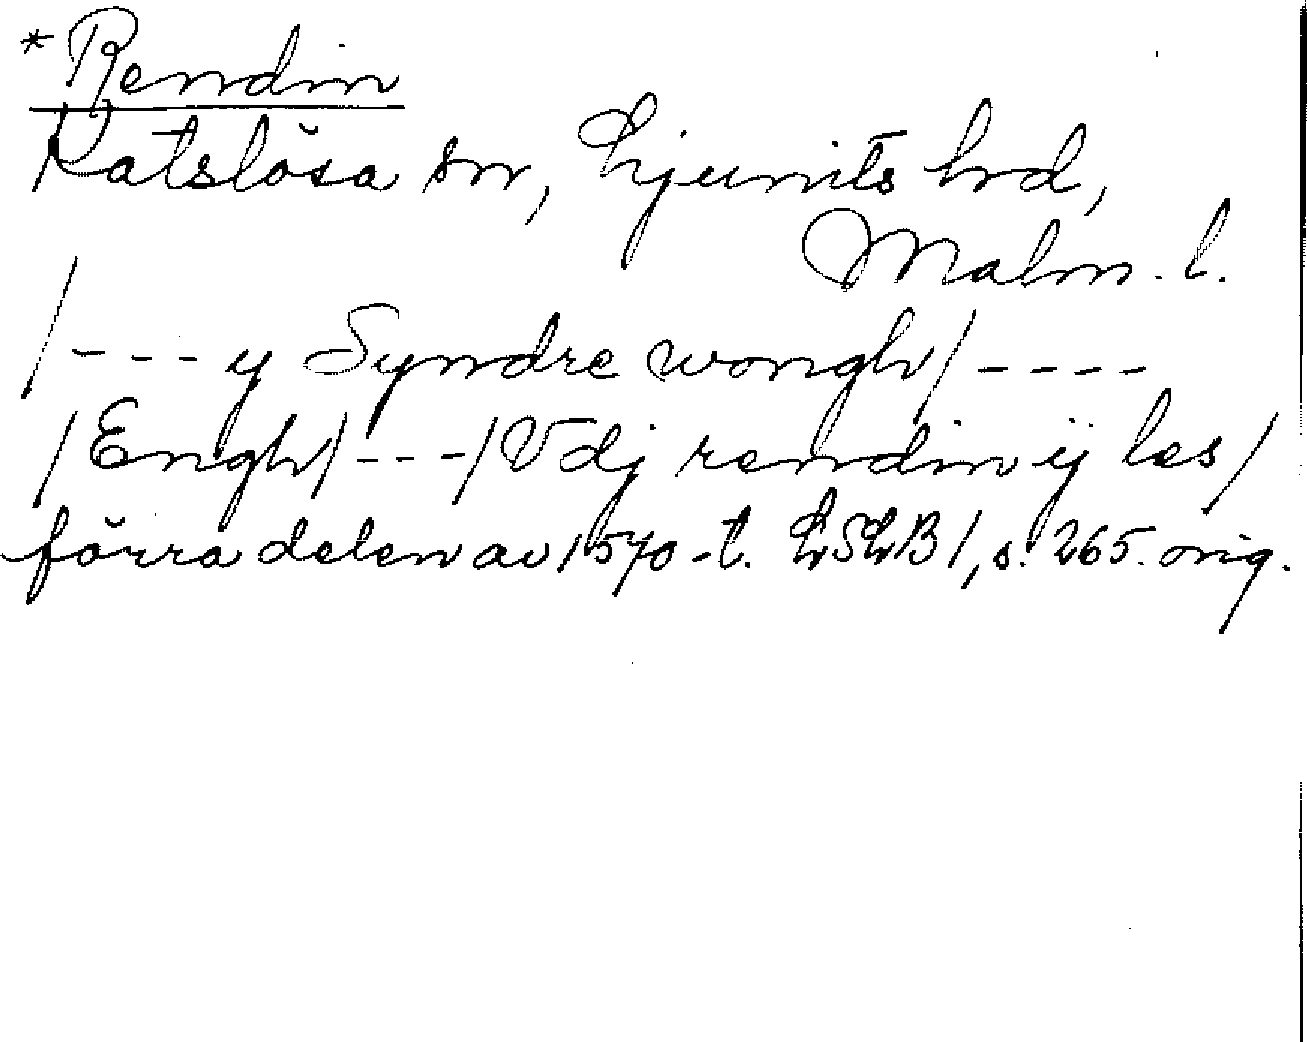 *Rendin
Katslösa sn, Ljunits hd,
Malm. l.
/---y Syndre wongh/----
/Engh/---/Vdj rendin ij les/
förra delen av 1570-t. LSLB1, s. 265. orig.